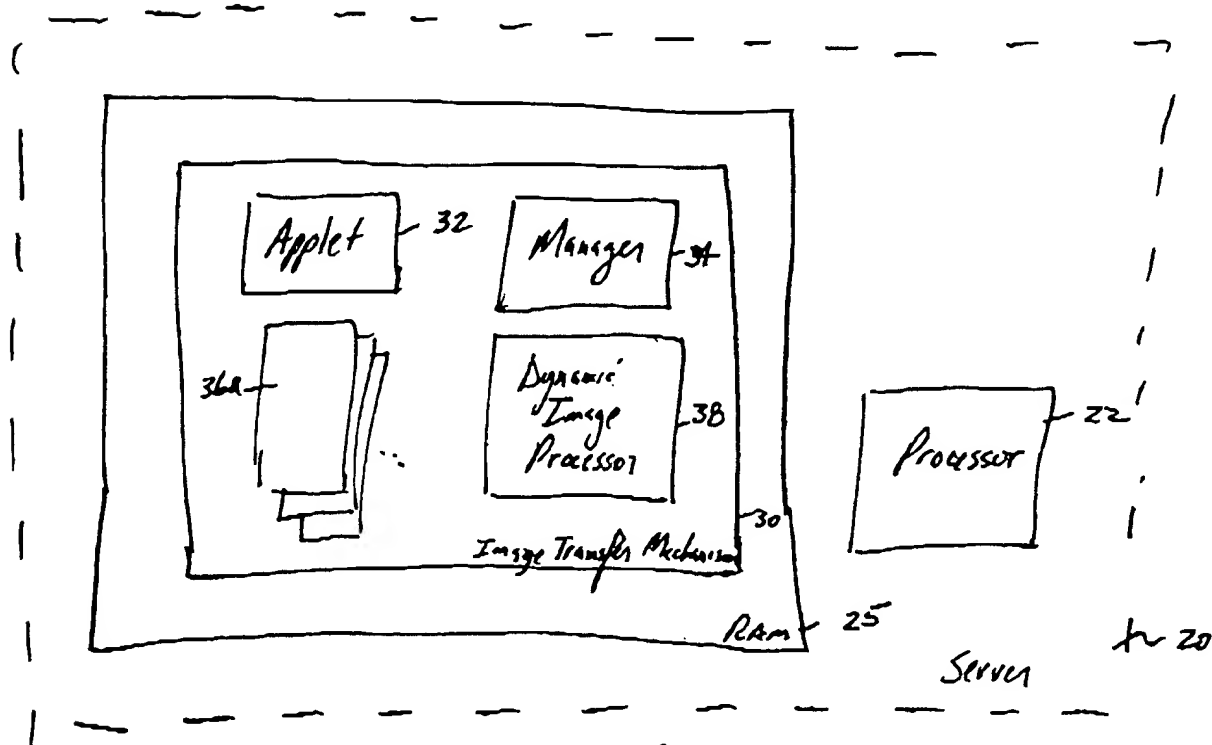 Applet
32
Manager
34
36a
Dynamic
Image
Processor
38
Processor
22
30
Image Transfer Mechanism
RAM
25
Server
20